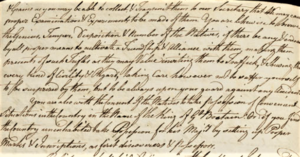 Grains as you may be able to collect & Transmit them to our Secretary that We may cause
proper Examination & Experiments to be made of them. You are likewise to observe
the Genius, Temper, Disposition & Number of the Natives, if there be any & endeavour
by all proper means to cultivate a Friendship & Alliance with them, making them
presents of such Trifles as they may Value inviting them to Traffick, & Shewing them
every kind of Civility & Regard, taking Care however not to suffer yourself
to be surprized by them, but to be always upon your guard against any Accident
You are also with the Consent of the Natives to take Possession of Convenient
Situations in the Country in the Name of the King of Gt. Britain: Or if you find
the Country uninhabited take Possession for his Majty. by setting up Proper
Marks & Inscriptions, as first discoverers & Possessors.